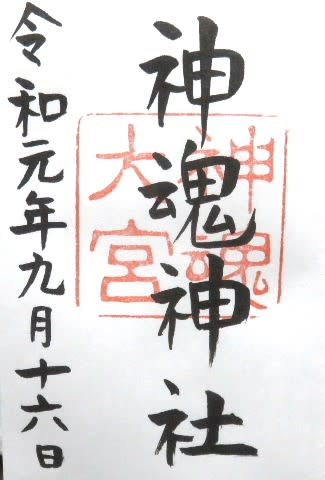 神魂神社
神魂
大宮
令和元年九月十六日